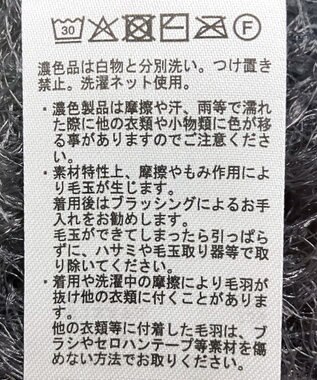 30
F
濃色品は白物と分別洗い。つけ置き
禁止。洗濯ネット使用。
・濃色製品は摩擦や汗、雨等で濡れ
た際に他の衣類や小物類に色が移
る事がありますのでご注意くださ
い。
・素材特性上、摩擦やもみ作用によ
り毛玉が生じます。
着用後はブラッシングによるお手
入れをお勧めします。
毛玉ができてしまったら引っぱら
ずに、ハサミや毛玉取り器等で取
り除いてください。
・着用や洗濯中の摩擦により毛羽が
抜け他の衣類に付くことがありま
す。
他の衣類等に付着した毛羽は、ブ
ラシやセロハンテープ等素材を傷
めない方法でお取りください。